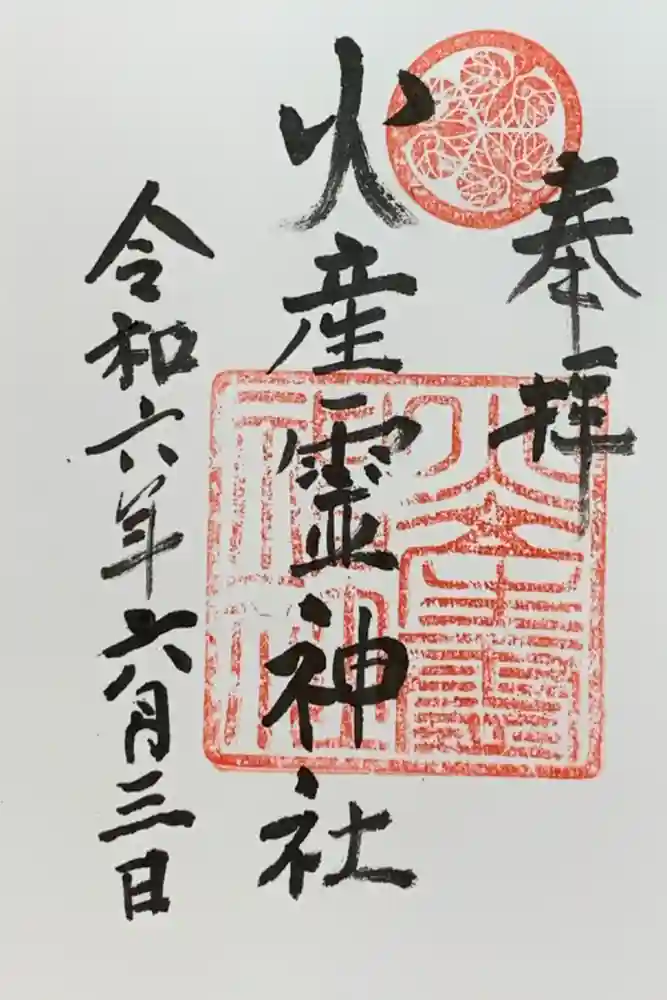 奉拝
火産霊神社
令和六年六月三日